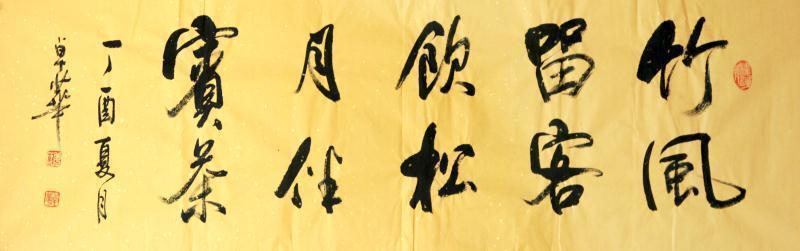 竹風
留客
飲松
月伴
賓茶
丁酉夏月
卓華